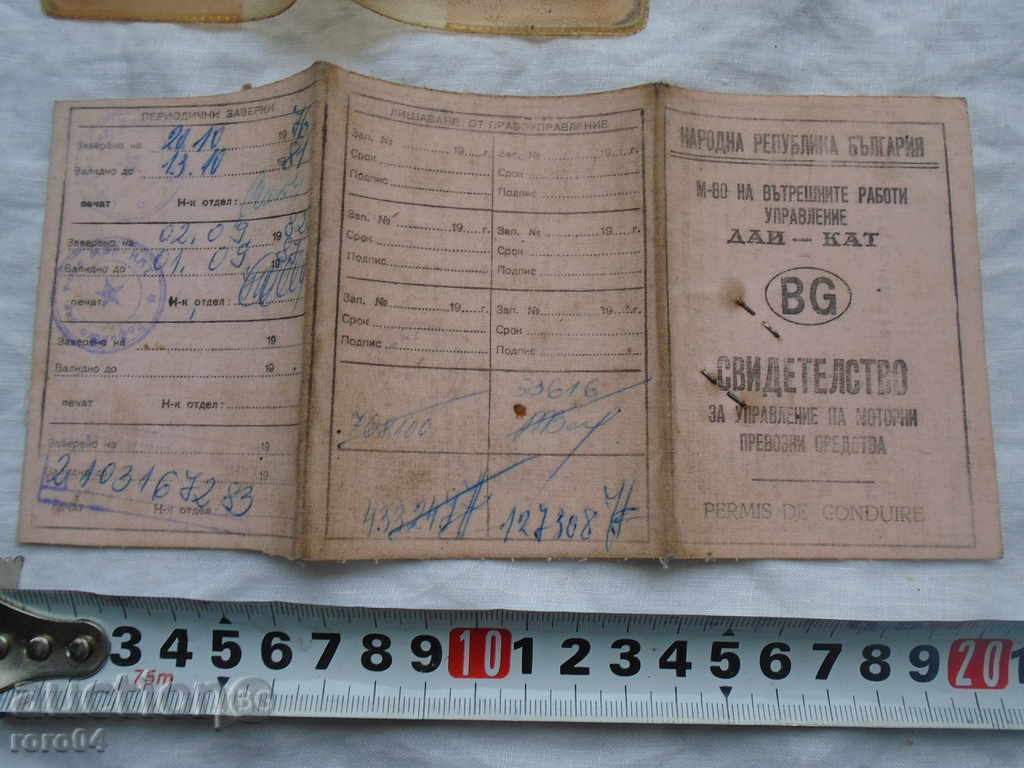 ПЕРИОДИЧНИ ЗАВЕРКИ
Заверено на 20.10 1976
Валидно до 13.10 81
печат Н-к отдел:
Заверено на 02.09 1982
Валидно до 01.09 19
печат Н-к отдел:
Заверено на 19
Валидно до 19
печат Н-к отдел:
Заверено на 19
19
2103167283
печат Н-к отдел
ЛИШАВАНЕ ОТ ПРАВОУПРАВЛЕНИЕ
Зап. № 19 г. Зап. № 19 г.
Срок Срок
Подпис Подпис
Зап. № 19 г. Зап. № 19 г.
Срок Срок
Подпис Подпис
Зап. № 19 г. Зап. № 19 г.
Срок Срок
Подпис Подпис
768100 53616
127308
НАРОДНА РЕПУБЛИКА БЪЛГАРИЯ
М-ВО НА ВЪТРЕШНИТЕ РАБОТИ
УПРАВЛЕНИЕ
ДАИ — КАТ
BG
СВИДЕТЕЛСТВО
ЗА УПРАВЛЕНИЕ НА МОТОРНИ
ПРЕВОЗНИ СРЕДСТВА
PERMIS DE CONDUIRE
3 4 5 6 7 8 9 10 1 2 3 4 5 6 7 8 9 20 1
7.5m
auction.bg
roro04